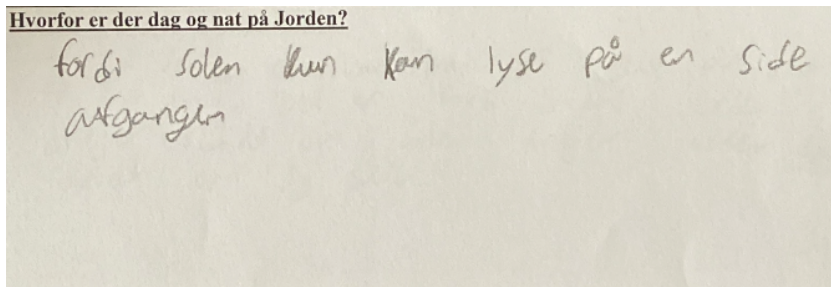 Hvorfor er der dag og nat på Jorden?
fordi solen kun kan lyse på en side
afgangen